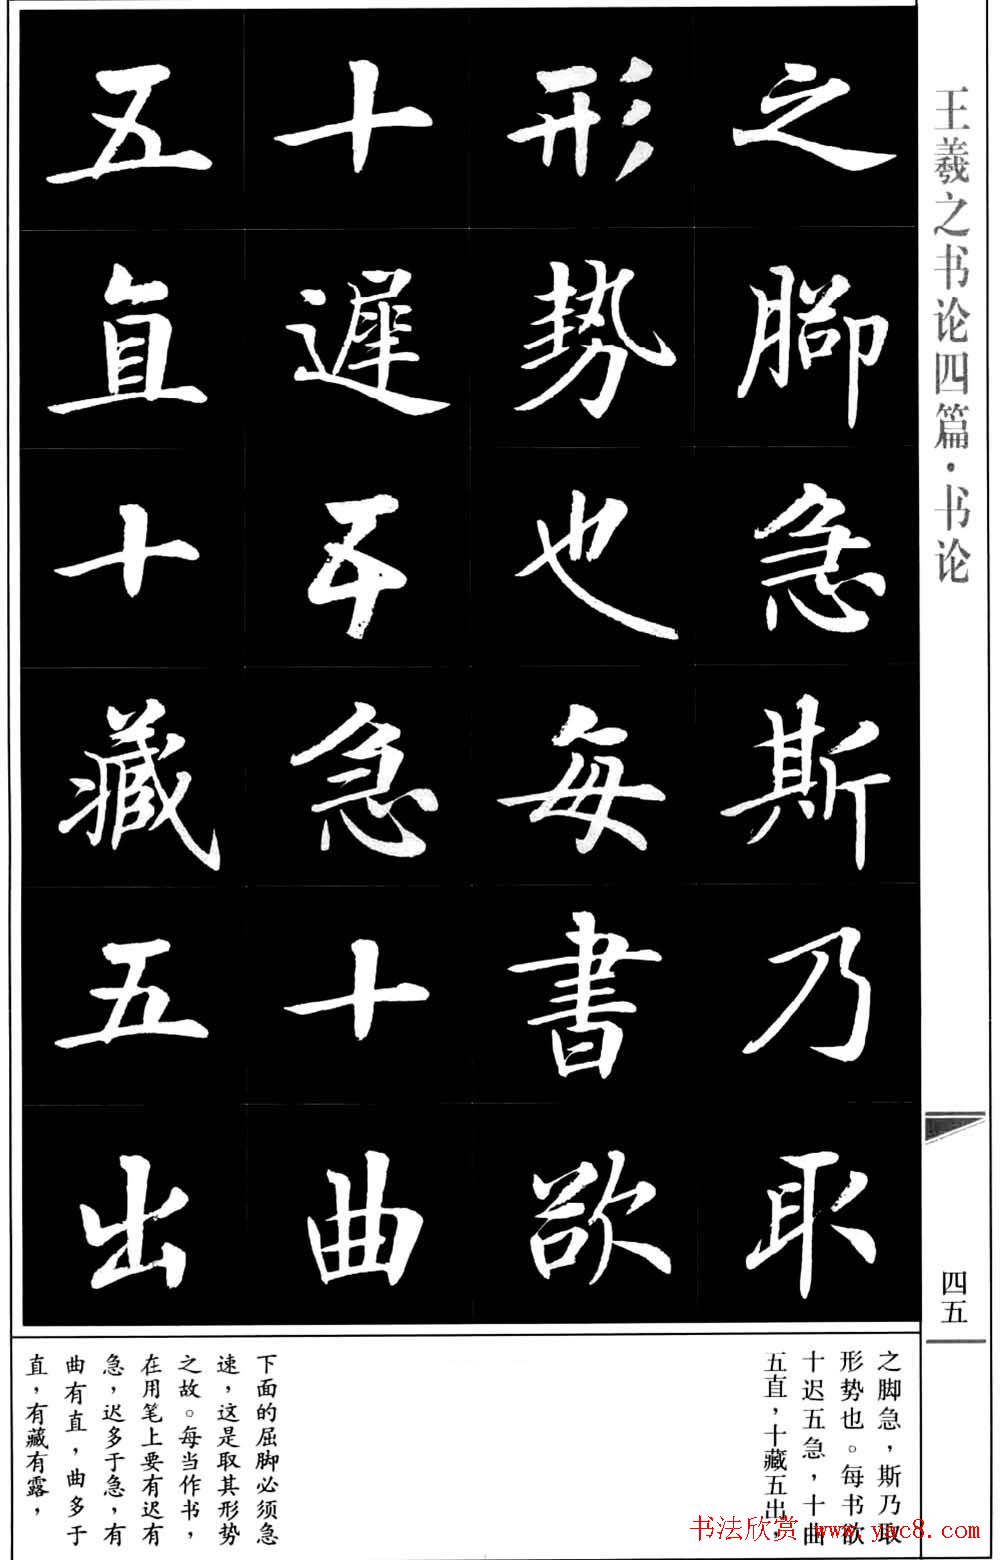 王羲之书论四篇·书论
之脚急斯乃取
形势也每書欲
十遲五急十曲
五直十藏五出
四五
之脚急，斯乃取
形势也。每书欲
十迟五急，十曲
五直，十藏五出，
下面的屈脚必须急
速，这是取其形势
之故。每当作书，
在用笔上要有迟有
急，迟多于急，有
曲有直，曲多于
直，有藏有露，
书法欣赏 www.yac8.com